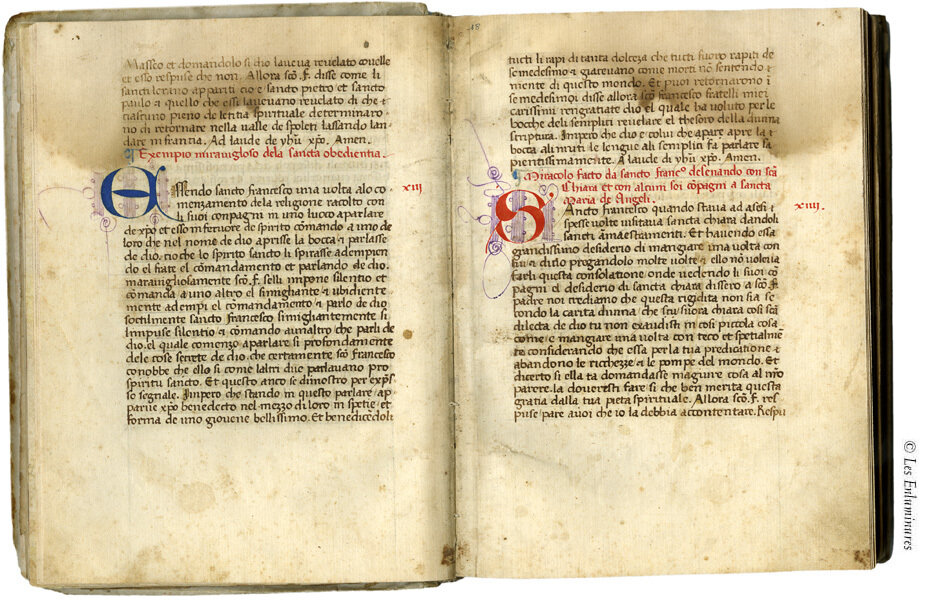 Masseo et domandolo si dio laueua reuelato couelle
et esso respuse che non. Allora scō. F. disse come li
sancti erano appariti cio e sancto pietro et sancto
paulo ⁊ quello che essi laueuano reuelato di che ⁊
ciascuno pieno de letitia spirituale determinaro
no di retornare nella ualle de spoleti lassando lan
dare in francia. Ad laude de yhū xp̄o. Amen.
Exempio marauiglioso dela sancta obedientia.
xiii
Essendo sancto francesco una uolta alo co
menzamento dela religione racolto con
li suoi conpagni in uno luoco aparlare
de xp̄o et esso inferuore de spirito comando a uno de
loro che nel nome de dio aprisse la bocca ⁊ parlasse
de dio. cio che lo spirito sancto li spirasse adempien
do el frate el cōmandamento et parlando de dio.
marauigliosamente scō. F. selli impone silentio et
cōmanda a uno altro el simighante ⁊ ubidiente
mente adempi el comandamento ⁊ parlo de dio
soctilmente sancto francesco simighantemente si
limpuse silentio ⁊ comando aunaltro che parli de
dio. el quale comenzo aparlare si profondamente
dele cose secrete de dio. che certamente scō francesco
conobbe che ello si come laltri due parlauano pro
spiritu sancto. Et questo anco se dimostro per exp̄s
so segnale. Impero che stando in questo parlare ap
parue xp̄o benedecto nel mezzo di loro in spetie et
forma de uno giouene bellissimo. Et benedicēdoli
18
tucti li rapi di tanta dolceza che tucti fuoro rapiti de
se medesimo ⁊ giaceuano come morti nō sentendo ⁊
mente di questo mondo. Et puoi retornarono ī
se medesimoi disse allora scō francesco fratelli miei
carissimi rengratiate dio el quale ha uoluto per le
bocche deli semplici reuelare el thesoro della diuina
scriptura. Impero che dio e colui che apare apre la ⁊
bocca ali muti ⁊ le lengue ali semplin fa parlare sa
pientissimamente. A laude di yhū xp̄o. Amen.
Miracolo facto da sancto francº dela cenando con scā
Chiara et con alcuni soi cōpagni a sancta
Maria de Angeli.
xiiii.
Sancto francesco quando staua ad asesi ⁊
spesse uolte uisitaua sancta chiara dandoli
sancti āmaestramenti. Et hauendo essa
grandissimo desiderio di mangiare una uolta con
lui ⁊ dicio progandolo molte uolte ⁊ ello nō uoleua
farli questa consolatione onde uedendo li suoi cō
pagni el desiderio di sancta chiara dissero a scō. F.
padre noi crediamo che questa rigidita non sia se
condo la carita diuina che ad suora chiara cosi scā
dilecta de dio tu non exaudisti in cosi piccola cosa
come e mangiare una uolta con teco et spetialmē
te considerando che essa per la tua predicatione ⁊
abandono le richezze ⁊ le pompe del mondo. Et
dicerto si ella ta domandasse magiure cosa al mō
parere. la doueresti fare si che ben merita questa
gratia dalla tua pieta spirituale. Allora scō. F. res
puse pare auoi che io la debbia accontentare. Respu
© Les Enluminures